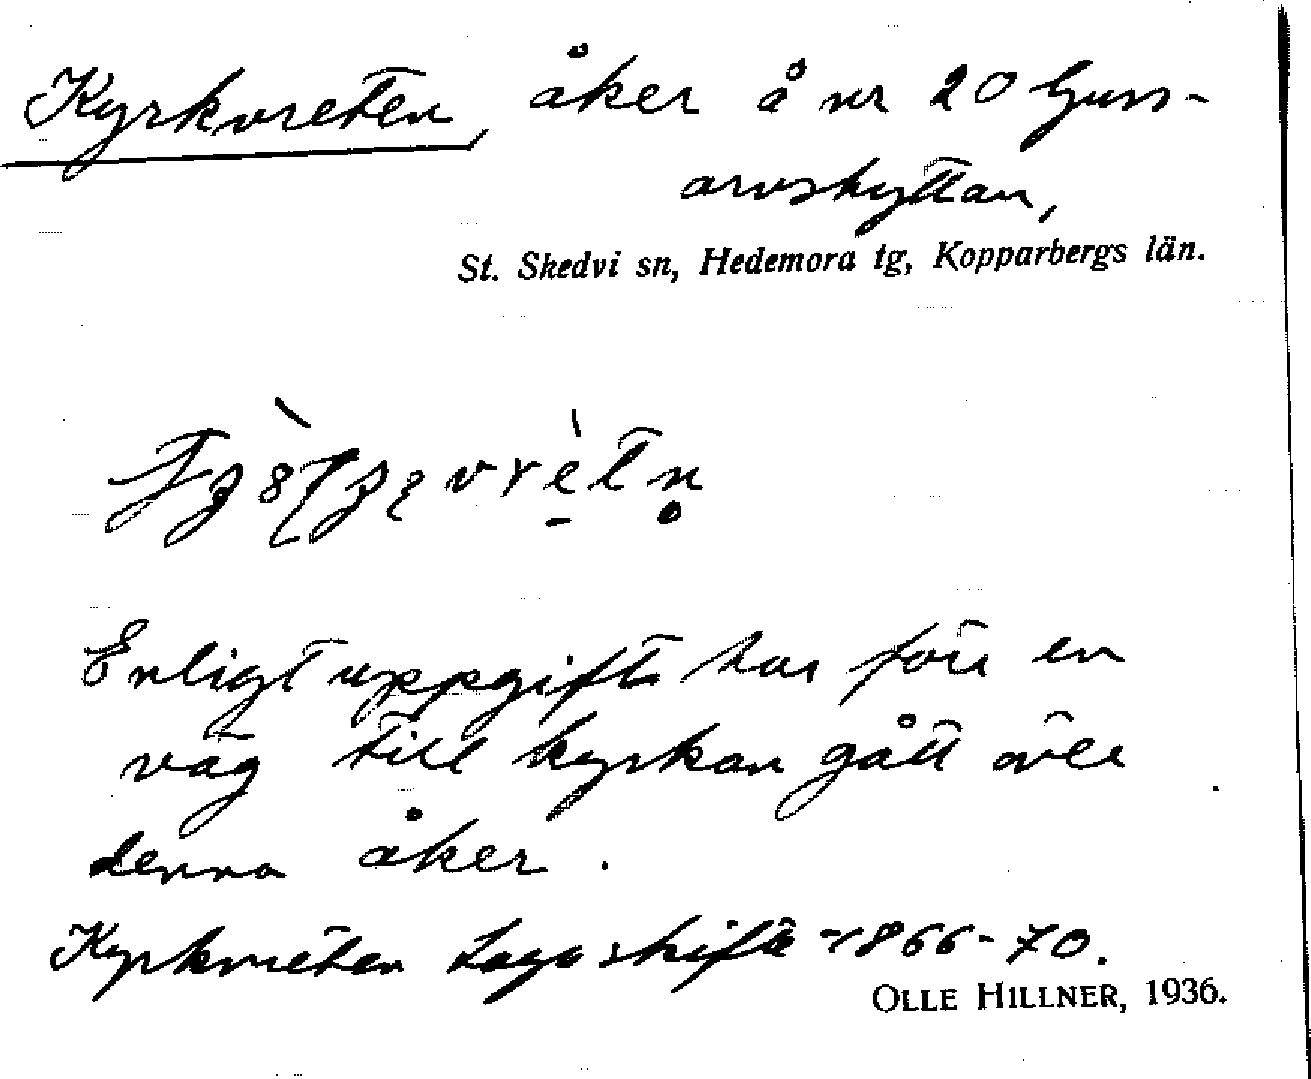 Kyrkvreten, åker å nr 20 Guss-
arvshyttan,
St. Skedvi sn, Hedemora tg, Kopparbergs län.
Enligt uppgift har förr en
väg till kyrkan gått över
denna åker.
Kyrkvreten Laga skifte 1866-70.
OLLE HILLNER, 1936.